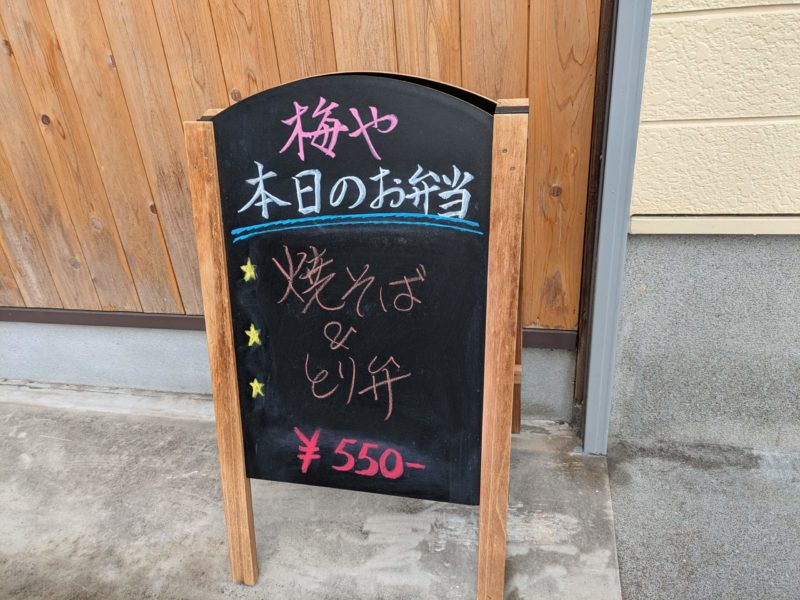 梅や
本日のお弁当
焼そば
&
とり弁
¥550-